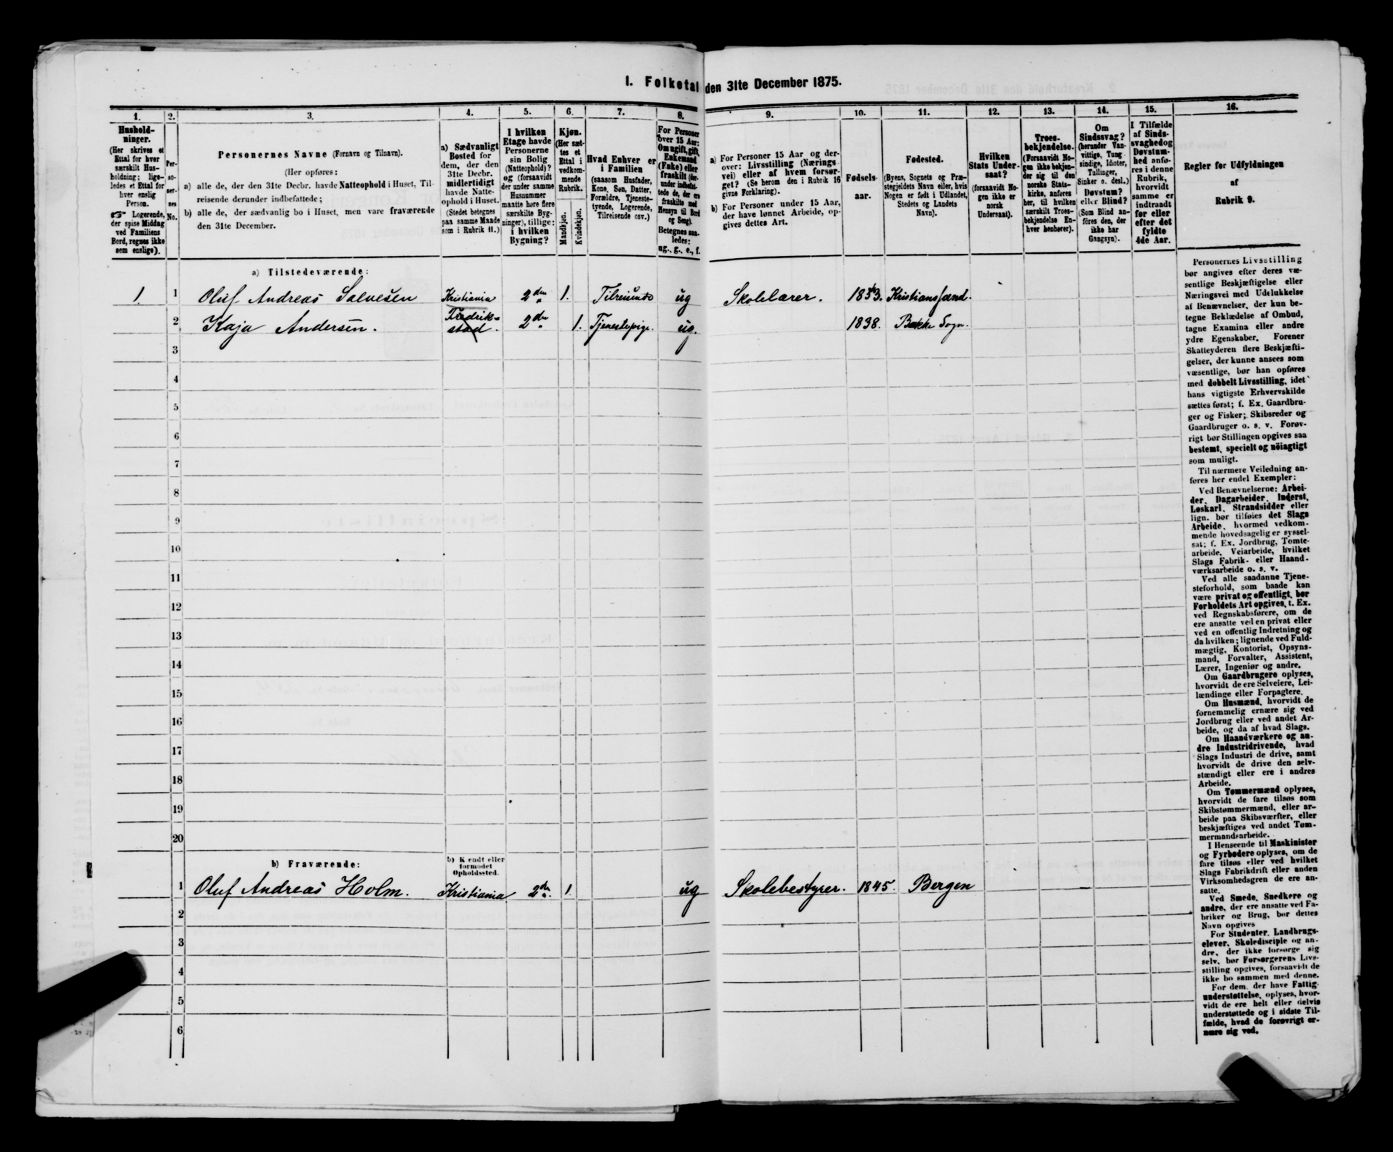 I. Folketal den 31te December 1875.
1.
Hushold-
ninger.
(Her skrives et
Ettal for hver
særskilt Hus-
holdning; lige-
ledes et Ettal for
hver enslig
Person.
☞ Logerende,
der spise Middag
ved Familiens
Bord, regnes ikke
som enslige).
2.
Per-
so-
ner-
nes
No.
3.
Personernes Navne (Fornavn og Tilnavn).
(Her opføres:
a) alle de, der den 31te Decbr. havde Natteophold i Huset, Til-
reisende derunder indbefattede;
b) alle de, der sædvanlig bo i Huset, men vare fraværende
den 31te December.
4.
a) Sædvanligt
Bosted for
dem, der den
31te Decbr.
midlertidigt
havde Natte-
ophold i Huset.
(Stedet betegnes
paa samme Maade
som i Rubrik 11.)
5.
I hvilken
Etage havde
Personerne
sin Bolig
(Natteophold)?
og (forsaavidt
der under samme
Husnummer
maatte høre flere
særskilte Byg-
ninger), tillige:
i hvilken
Bygning?
6.
Kjøn.
(Her sæt-
tes et
Ettal i
vedkom-
mende
Rubrik.)
Mandkjøn.
Kvindekjøn.
7.
Hvad Enhver er
i Familien
(saasom Husfader,
Kone, Søn, Datter,
Forældre, Tjeneste-
tyende, Logerende,
Tilreisende osv.)
8.
For Personer
over 15 Aar:
Om ugift, gift,
Enkemand
(Enke) eller
fraskilt
Betegnes saa-
ledes:
ug., g., e., f.
9.
a) For Personer 15 Aar og der-
over: Livsstilling (Nærings-
vei) eller af hvem forsør-
get? (Se herom den i Rubrik 16
givne Forklaring).
b) For Personer under 15 Aar,
der have lønnet Arbeide, op-
gives dettes Art.
10.
Fødsels-
aar.
11.
Fødested.
(Byens, Sognets og Præ-
stegjeldets Navn eller, hvis
Nogen er født i Udlandet,
Stedets og Landets
Navn).
12.
Hvilken
Stats Under-
saat?
(forsaavidt No-
gen ikke er
norsk
Undersaat).
13.
Troes-
bekjendelse.
(Forsaavidt No-
gen ikke bekjen-
der sig til den
norske Stats-
kirke, anføres
her, til hvilken
særskilt Troes-
bekjendelse En-
hver henhører).
14.
Om
Sindssvag?
(herunder Van-
vittige, Tung-
sindige, Idioter,
Tullinger,
Sinker o. desl.)
Døvstum?
eller Blind?
(Som Blind an-
føres den, der
ikke har
Gangsyn).
15.
I Tilfælde
af Sinds-
svaghed og
Døvstum-
hed anfø-
res i denne
Rubrik,
hvorvidt
samme er
indtraadt
før eller
efter det
fyldte
4de Aar.
16.
Regler for Udfyldningen
af
Rubrik 9.
a) Tilstedeværende:
1 1 Oluf Andreas Salvesen Kristiania 2den 1. Tilreisende ug Skolelærer. 1853. Kristianssand.
2 Kaja Andersen. Fredrik-
stad. 2den 1. Tjenestepige. ug. 1838. Bakke Sogn.
3
4
5
6
7
8
9
10
11
12
13
14
15
16
17
18
19
20
b) Fraværende:
b) Kjendt eller
formodet
Opholdssted.
1 Oluf Andreas Holm. Kristiania 2den 1. ug Skolebestyrer. 1845. Bergen
2
3
4
5
6
Personernes Livsstilling
bør angives efter deres væ-
sentlige Beskjæftigelse eller
Næringsvei med Udelukkelse
af Benævnelser, der kun be-
tegne Beklædelse af Ombud,
tagne Examina eller andre
ydre Egenskaber. Forener
Skatteyderen flere Beskjæfti-
gelser, der kunne ansees som
væsentlige, bør han opføres
med dobbelt Livsstilling, idet
hans vigtigste Erhvervskilde
sættes først; f. Ex. Gaardbru-
ger og Fisker; Skibsreder og
Gaardbruger o. s. v. Forøv-
rigt bør Stillingen opgives saa
bestemt, specielt og nøiagtigt
som muligt.
Til nærmere Veiledning an-
føres her endel Exempler:
Ved Benævnelserne: Arbei-
der, Dagarbeider, Inderst,
Løskarl, Strandsidder eller
lign. bør tilføies det Slags
Arbeide, hvormed vedkom-
mende hovedsagelig er syssel-
sat; f. Ex. Jordbrug, Tomte-
arbeide, Veiarbeide, hvilket
Slags Fabrik- eller Haand-
værksarbeide o. s. v.
Ved alle saadanne Tjene-
steforhold, som baade kan
være privat og offentligt, bør
Forholdets Art opgives, t. Ex.
ved Regnskabsførere, om de
ere ansatte ved en privat eller
ved en offentlig Indretning og
da hvilken; lignende ved Fuld-
mægtig, Kontorist, Opsyns-
mand, Forvalter, Assistent,
Lærer, Ingeniør og andre.
Om Gaardbrugere oplyses,
hvorvidt de ere Selveiere, Lei-
lændinge eller Forpagtere.
Om Husmænd, hvorvidt de
fornemmelig ernære sig ved
Jordbrug eller ved andet Ar-
beide, og da af hvad Slags.
Om Haandværkere og an-
dre Industridrivende, hvad
Slags Industri de drive, samt
hvorvidt de drive den selv-
stændigt eller ere i andres
Arbeide.
Om Tømmermænd oplyses,
hvorvidt de fare tilsøs som
Skibstømmermænd, eller ar-
beide paa Skibsværfter, eller
beskjæftiges ved andet Tøm-
mermandsarbeide.
I Henseende til Maskinister
og Fyrbødere oplyses, om de
fare tilsøs eller ved hvilket
Slags Fabrikdrift eller anden
Virksomhedsgren de ere an-
satte.
Ved Smede, Snedkere og
andre, der ere ansatte ved Fa-
briker og Brug, bør dettes
Navn opgives
For Studenter, Landbrugs-
elever, Skoledisciple og an-
dre, der ikke forsørge sig
selv, bør Forsørgerens Livs-
stilling opgives, forsaavidt de
ikke bo sammen med denne.
For dem, der have Fattig-
understøttelse, oplyses, hvor-
vidt de ere helt eller delvis
understøttede og i sidste Til-
fælde, hvad de forøvrigt er-
nære sig ved.